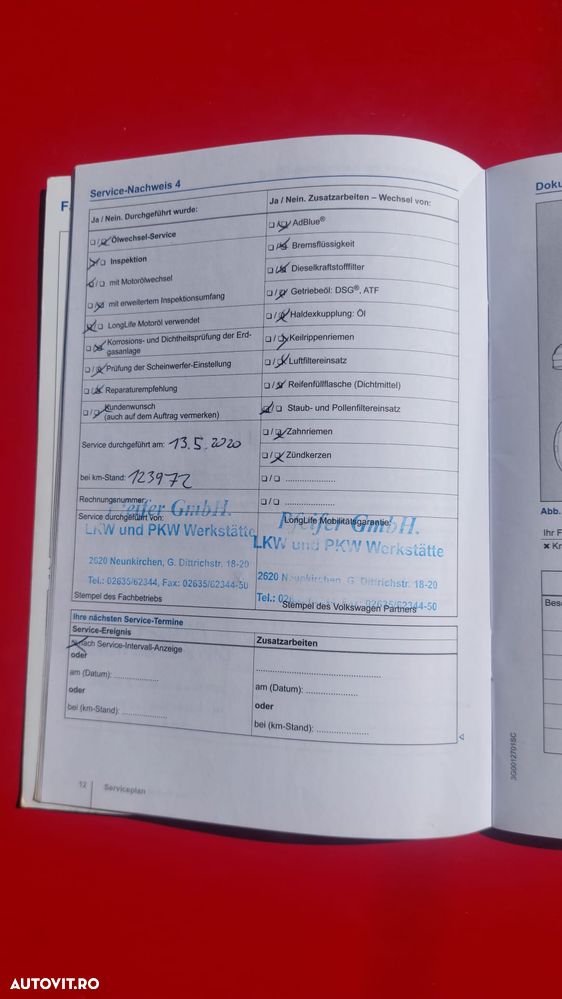 Service-Nachweis 4
Ja / Nein. Durchgeführt wurde:
❑ / ❑ Ölwechsel-Service
❑ / ❑ Inspektion
❑ / ❑ mit Motorölwechsel
❑ / ❑ mit erweitertem Inspektionsumfang
❑ / ❑ LongLife Motoröl verwendet
❑ / ❑ Korrosions- und Dichtheitsprüfung der Erd-
gasanlage
❑ / ❑ Prüfung der Scheinwerfer-Einstellung
❑ / ❑ Reparaturempfehlung
❑ / ❑ Kundenwunsch
(auch auf dem Auftrag vermerken)
Service durchgeführt am: 13.5.2020
bei km-Stand: 123972
Rechnungsnummer:
Service durchgeführt von:
Pfeifer GmbH.
LKW und PKW Werkstätte
2620 Neunkirchen, G. Dittrichstr. 18-20
Tel.: 02635/62344, Fax: 02635/62344-50
Stempel des Fachbetriebs
Ja / Nein. Zusatzarbeiten – Wechsel von:
❑ / ❑ AdBlue®
❑ / ❑ Bremsflüssigkeit
❑ / ❑ Dieselkraftstofffilter
❑ / ❑ Getriebeöl: DSG®, ATF
❑ / ❑ Haldexkupplung: Öl
❑ / ❑ Keilrippenriemen
❑ / ❑ Luftfiltereinsatz
❑ / ❑ Reifenfüllflasche (Dichtmittel)
❑ / ❑ Staub- und Pollenfiltereinsatz
❑ / ❑ Zahnriemen
❑ / ❑ Zündkerzen
❑ / ❑ ....................
❑ / ❑ ....................
LongLife Mobilitätsgarantie:
Pfeifer GmbH.
LKW und PKW Werkstätte
2620 Neunkirchen, G. Dittrichstr. 18-20
Tel.: 02635/62344, Fax: 02635/62344-50
Stempel des Volkswagen Partners
Ihre nächsten Service-Termine
Service-Ereignis
nach Service-Intervall-Anzeige
oder
am (Datum): ..................
oder
bei (km-Stand): ..................
Zusatzarbeiten
..................................................
am (Datum): ....................
oder
bei (km-Stand): ....................
12 Serviceplan
Doku
Abb.
Ihr F
✖ Kr
Besc
3G0012701SC
AUTOVIT.RO